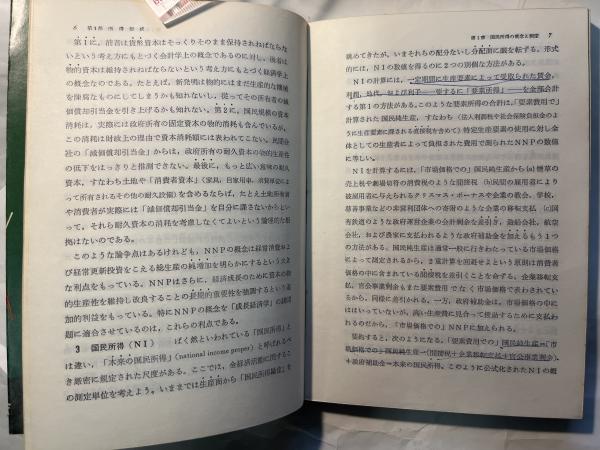 6 第1部 所得接続
第1に、消費は貨幣資本はそっくりそのまま保持されねばならな
いという考え方にもとづく会計学上の概念であるのに対し、後者は
物的資本は維持されねばならないという考え方にもとづく経済学上
の概念なのである。たとえば、新発明は物的にはまだ生産的な機械
を陳腐なものにしてしまうかも知れないし、従ってその所有者の減
価償却引当金を引き上げるかも知れない。第2に、国民規模の資本
消耗は、実際には政府所有の固定資本の物的消耗も含んでいるが、
この消耗は財政上の理由で資本消耗額には表われてこない。民間会
社の「減価償却引当金」からは、政府所有の耐久資本の物的生産性
の低下をはっきりと推測できない。最後に、もっと広い意味の耐久
資本、すなわち土地や「消費者資本」(家具、自家用車、消費単位によ
って所有されるその他の耐久設備)を含めるならば、たとえ土地所有者
や消費者が実際には「減価償却引当金」を自分に課さないからとい
って、それら耐久資本の消耗を考慮しなくてよいという論理的な根
拠はないのである。
このような論争点はあるけれども、NNPの概念は経常消費およ
び経常更新投資をこえる総生産の純増加を明らかにするという大き
な利点をもっている。NNPはさらに、経済成長のために資本の物
的生産性を維持し改良することの長期的重要性を強調するという追
加的利益をもっている。特にNNPの概念を「成長経済学」の諸問
題に適合させているのは、これらの利点である。
3 国民所得(NI) ばく然といわれている「国民所得」と
は違い、「本来の国民所得」(national income proper)と呼ばれるべ
き厳密に規定された尺度がある。ここでは、金経済活動に関するこ
の測定単位を考えよう。いままでは生産面から「国民所得勘定」を
第1章 国民所得の概念と測定 7
眺めてきたが、いまそれらの配分ないし分配面に眼を転ずる。形式
的には、NIの数値を得るのに2つの別個な方法がある。
NIの計算には、一定期間に生産要素によって受取られた賃金、
利潤、地代、および利子――要するに「要素所得」――を全部合計
する第1の方法がある。このような要素所得の合計は、「要素費用で」
計算された国民純生産、すなわち(法人利潤税や社会保険負担金のよう
に生産要素に課される直接税を含めて)特定生産要素の使用に対し全体
としての生産者によって負担された費用で測られたNNPの数値
に等しい。
NIを計算するには、「市場価格での」国民純生産から(a)煙草の
売上税や劇場切符の消費税のような間接税 (b)民間の雇用者により
被雇用者に与えられるクリスマス・ボーナスや企業の教会、学校、
慈善事業などの非営利団体への寄附のような企業の移転支払 (c)国
有鉄道のような政府運営企業の会計剰余を差引き、造船会社、航空
会社、および農家に支払われるような政府補助金を加えるもう1つ
の方法がある。国民純生産は通常一般に行きわたっている市場価格
によって測定されるから、2重計算を回避せよという原則は消費者
価格の中に含まれている間接税を差引くことを命ずる。企業移転支
払、官公事業剰余もまた要素費用でなく市場価格で表わされている
から、同様に差引かれる。一方、政府補助金は、市場価格の中には
はいっていないが、高い生産費に見合って援助するために支払われ
るのだから、「市場価格での」NNPに加えられる。
要約すると、次のようになる。「要素費用での」国民純生産=「市
場価格での」国民純生産-(間接税+企業移転支払+官公事業剰余)
+政府補助金=本来の国民所得。このように公式化されたNIの概